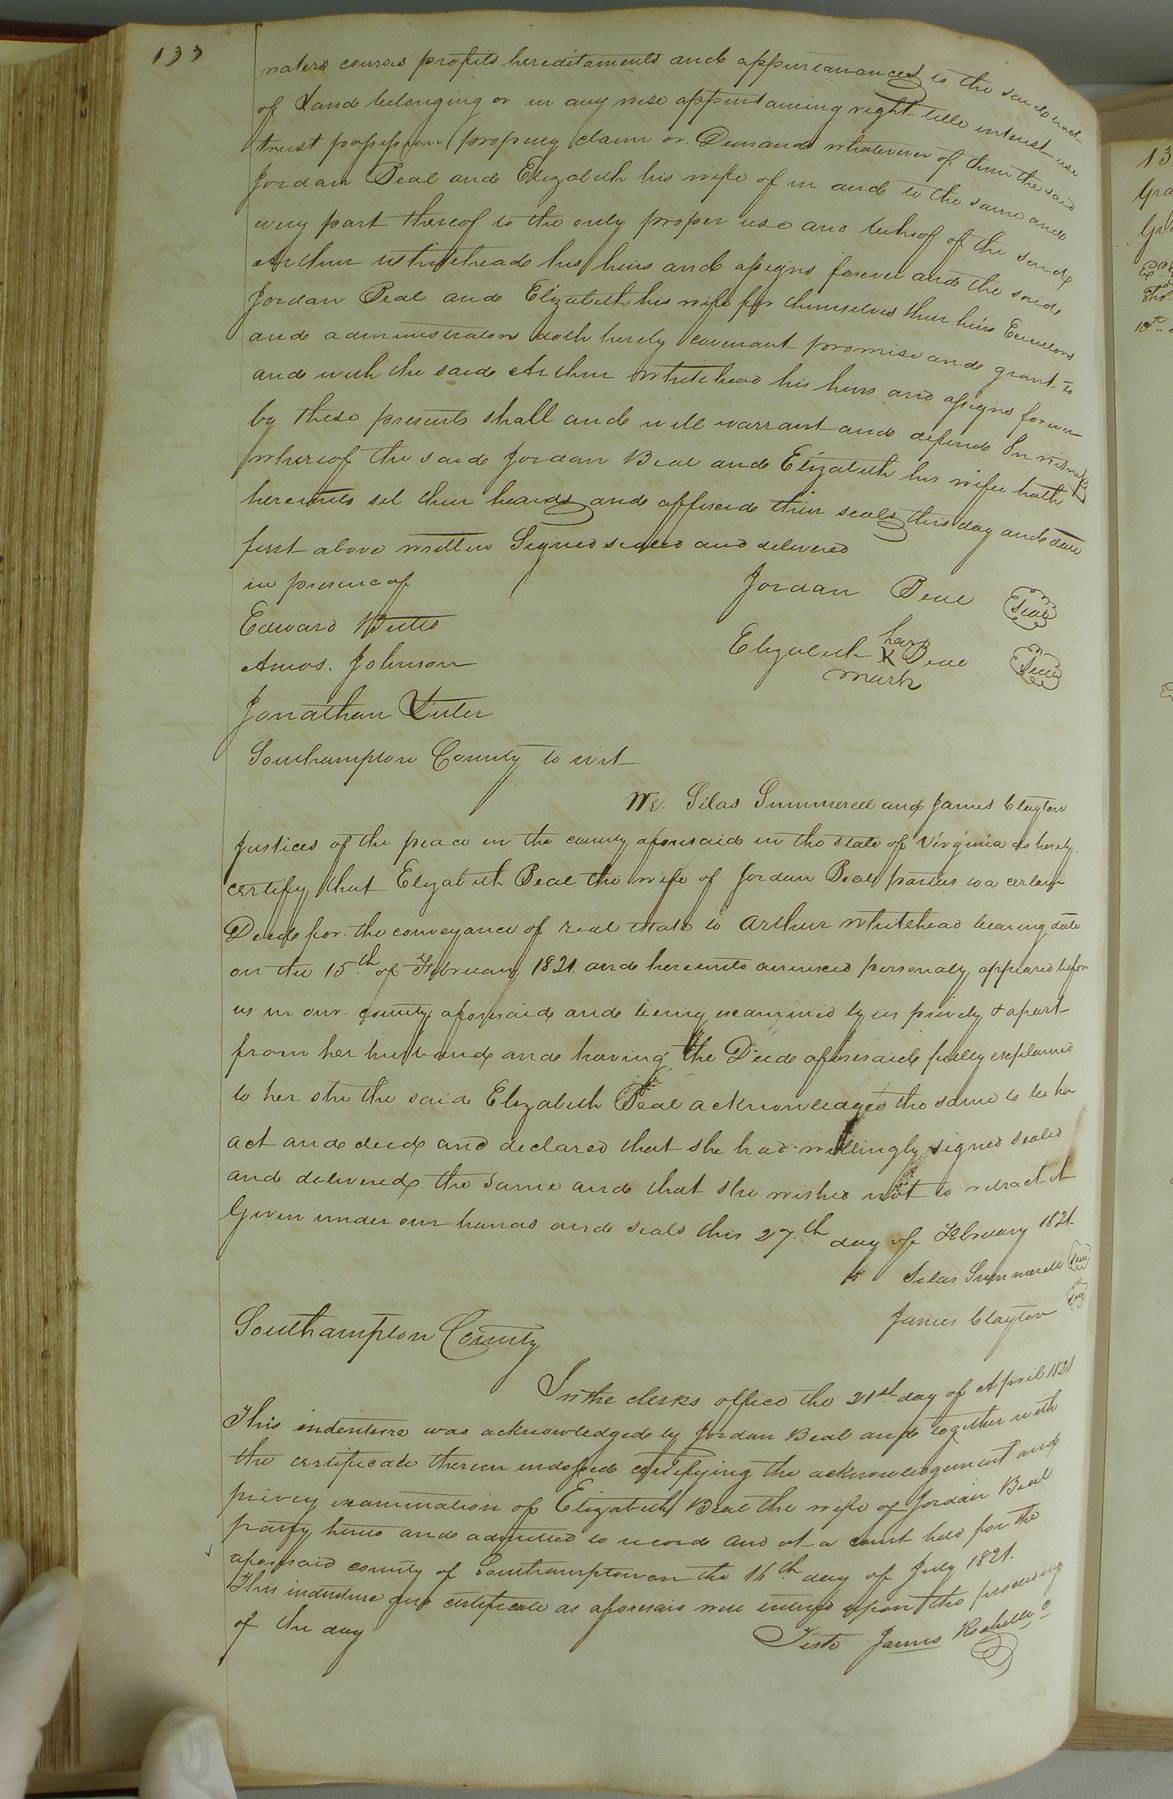 133
waters courses profits hereditaments and appurtenances to the said tract
of Land belonging or in any wise appertaining right title interest use
trust possession property claim or Demand whatever of them the said
Jordan Beal and Elizabeth his wife of in and to the same and
every part thereof to the only proper use and behoof of the said
Arthur Whitehead his heirs and assigns forever and the said
Jordan Beal and Elizabeth his wife for themselves their heirs Executors
and administrators doth hereby covenant promise and grant to
and with the said Arthur Whitehead his heirs and assigns forever
by these presents shall and will warrant and defend In witness
whereof the said Jordan Beal and Elizabeth his wife hath
hereunto set their hands and affixed their seals this day and date
first above written Signed sealed and delivered
in presence of
Jordan Beal Seal
Edward Butts
Elizabeth her X mark Beal Seal
Amos. Johnson
Jonathan Liter
Southampton County to wit
We. Silas Summerell and James Clayton
Justices of the peace in the county aforesaid in the state of Virginia do hereby
certify that Elizabeth Beal the wife of Jordan Beal parties to a certain
Deed for the conveyance of real estate to Arthur Whitehead bearing date
on the 15th of February 1821 and hereunto annexed personaly appeared before
us in our county aforesaid and being examined by us privily & apart
from her husband and having the Deed aforesaid fully explained
to her she the said Elizabeth Beal acknowledged the same to be her
act and deed and declared that she had willingly signed sealed
and delivered the same and that she wished not to retract it
Given under our hands and seals this 27th day of February 1821
Silas Summerell Seal
James Clayton Seal
Southampton County
In the clerks office the 21st day of April 1821
This indenture was acknowledged by Jordan Beal and together with
the certificate thereon endorsed certifying the acknowledgement and
privey examination of Elizabeth Beal the wife of Jordan Beal
party hereto and admitted to record and at a court held for the
aforesaid county of Southampton on the 16th day of July 1821.
This indenture and certificate as aforesaid were entered upon the proceeding
of the day
Teste James Rochelle